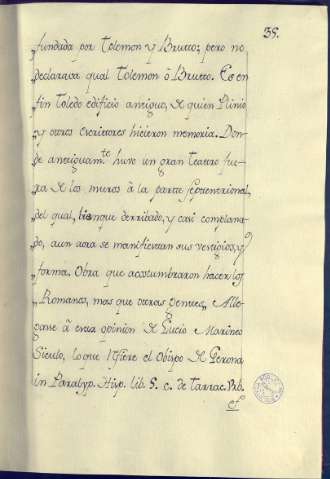 35.
„fundada por Tolemon y Brutto; pero no
„declarava qual Tolemon ò Brutto. Es en
„fin Toledo edificio antiguo, de quien Plinio
„y otros Escritores hicieron memoria. Don-
„de antiguam.te huvo un gran Teatro fue-
„ra de los muros à la parte septentrional,
„del qual, bienque derribado, y casi complana-
„do, aun aora se manifiestan sus vestigios, y
„forma. Obra que acostumbraron hacer los
„Romanos, mas que otras gentes„ Alle-
gase à esta opinion de Lucio Marinèo
Siculo, lo que refiere el Obispo de Gerona
in Paralyp. Hisp. lib. 5. c. de Tarrac. Vrb.